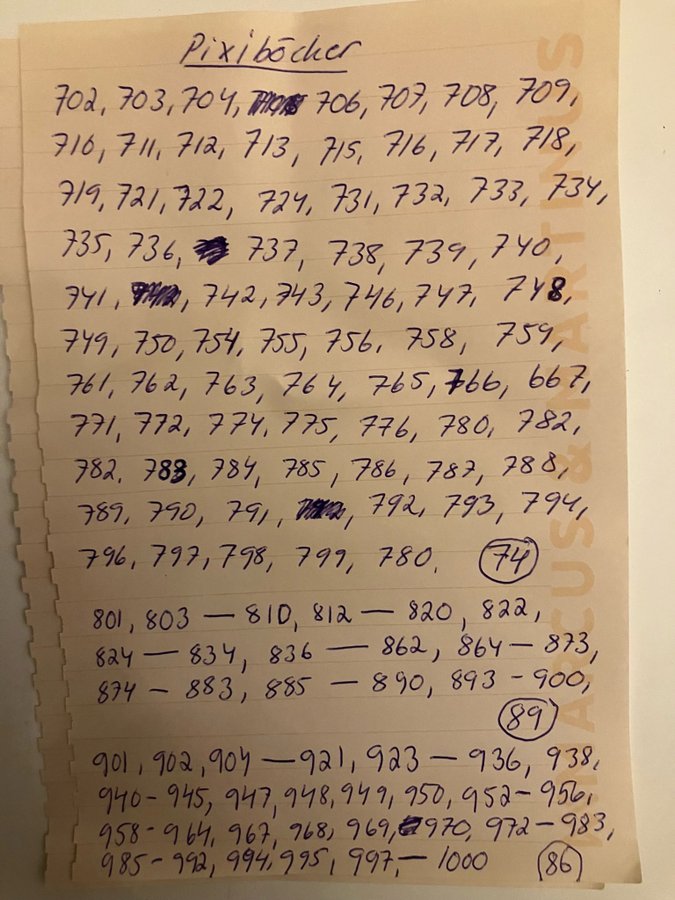 Pixiböcker
702, 703, 704, 706, 707, 708, 709,
710, 711, 712, 713, 715, 716, 717, 718,
719, 721, 722, 724, 731, 732, 733, 734,
735, 736, 737, 738, 739, 740,
741, 742, 743, 746, 747, 748,
749, 750, 754, 755, 756, 758, 759,
761, 762, 763, 764, 765, 766, 667,
771, 772, 774, 775, 776, 780, 782,
782, 783, 784, 785, 786, 787, 788,
789, 790, 791, 792, 793, 794,
796, 797, 798, 799, 780. 74
801, 803 — 810, 812 — 820, 822,
824 — 834, 836 — 862, 864 — 873,
874 — 883, 885 — 890, 893 - 900,
89
901, 902, 904 — 921, 923 — 936, 938,
940 - 945, 947, 948, 949, 950, 952 - 956,
958 - 964, 967, 968, 969, 970, 972 - 983,
985 - 992, 994, 995, 997, — 1000 86
ARCUS & MARTINUS